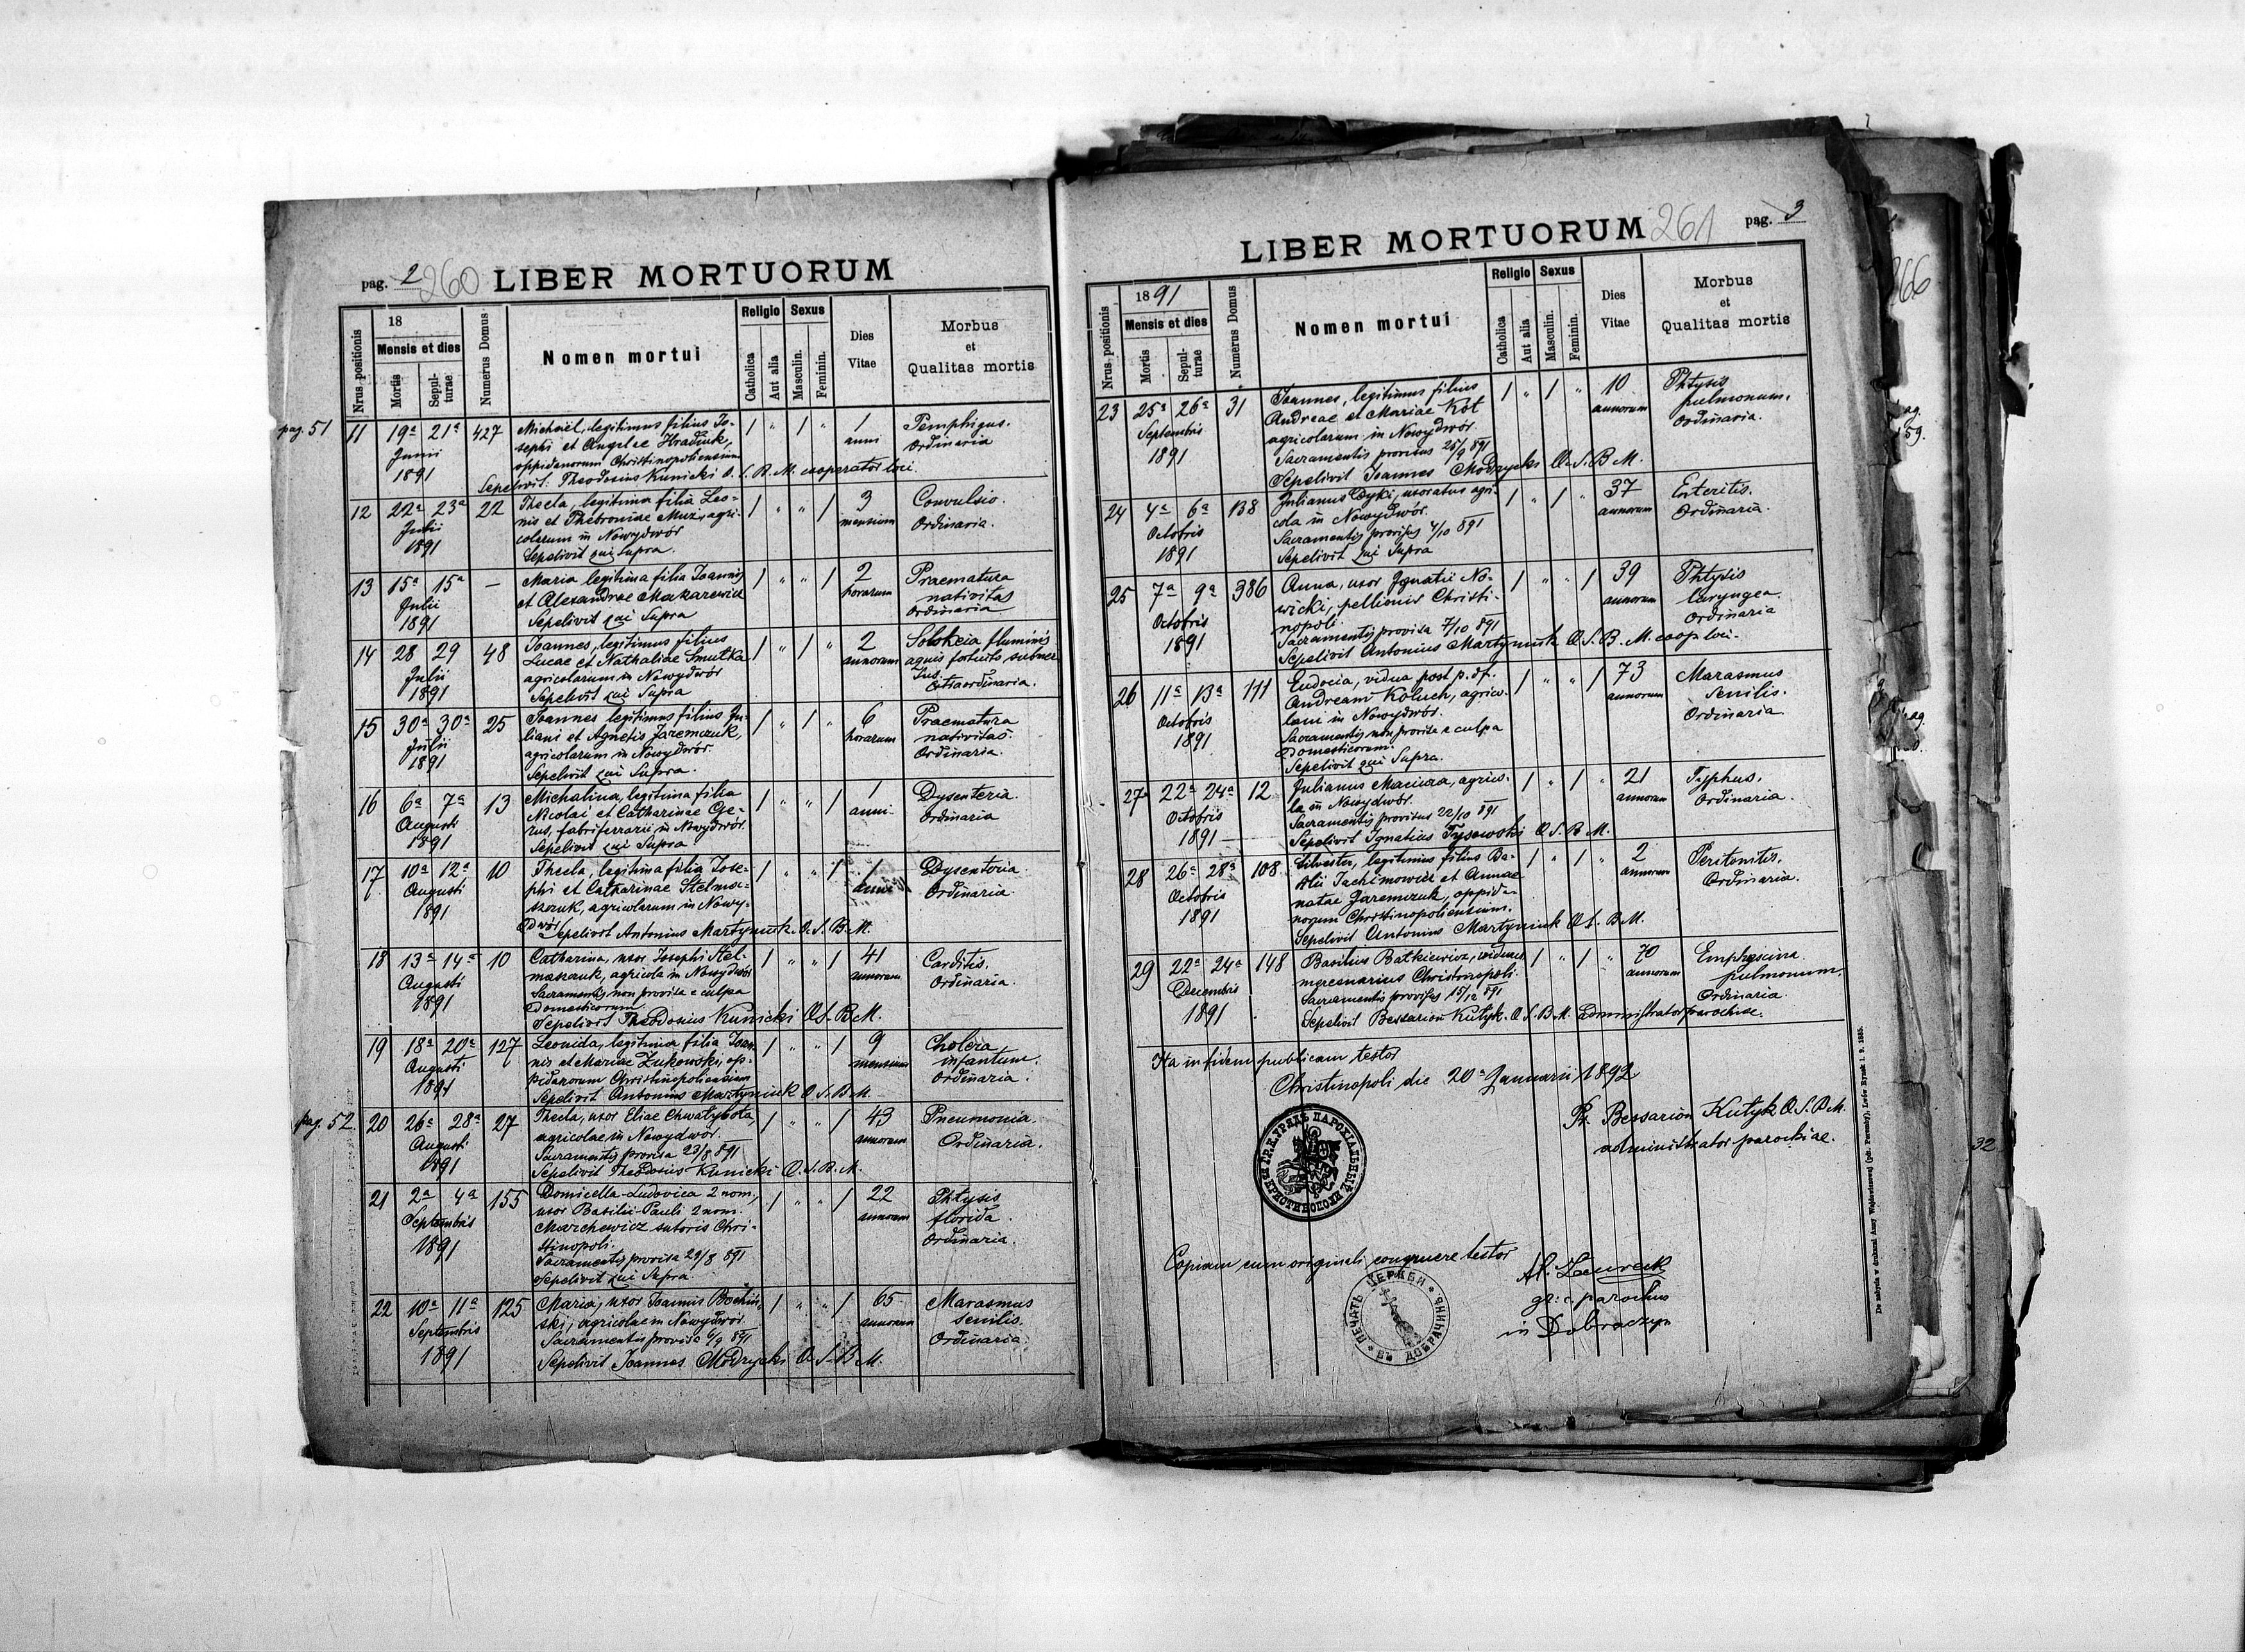 pag. 2 260 LIBER MORTUORUM
Nrus positionis
18
Mensis et dies
Mortis
Sepul-
turae
Numerus Domus
Nomen mortui
Religio
Catholica
Aut alia
Sexus
Masculin.
Feminin.
Dies
Vitae
Morbus
et
Qualitas mortis
pag. 51
11 19a 21a Junii 1891 427
Michaël, legitimus filius Jo-
sephi et Angelae Hradiuk,
oppidanorum Christinopoliensium
Sepelivit: Theodosius Kunicki O. S. B. M. cooperator loci.
1 " 1 "
1 anni
Pemphigus.
Ordinaria
12 22a 23a Julii 1891 22
Thecla, legitima filia Leo-
nis et Thebroniae Muz, agri-
colarum in Nowydwór
Sepelivit qui Supra.
1 " " 1
3 mensium
Convulsio.
Ordinaria.
13 15a 15a Julii 1891 —
Maria legitima filia Joannis
et Alexandrae Makarewicz
Sepelivit qui Supra
1 " " 1
2 horarum
Praematura
nativitas
Ordinaria
14 28 29 Julii 1891 48
Joannes, legitimus filius
Lucae et Nathaliae Smutka
agricolarum in Nowydwór
Sepelivit qui Supra
1 " 1 "
2 annorum
Solokeia fluminis
aquis fortuito submer
sus.
Extraordinaria.
15 30a 30a Julii 1891 25
Joannes legitimus filius Ju-
liani et Agnetis Jaremczuk,
agricolarum in Nowydwór.
Sepelivit qui Supra.
1 " 1 "
6 horarum
Praematura
nativitas
Ordinaria.
16 6a 7a Augusti 1891 13
Michalina, legitima filia
Nicolai et Catharinae Ge-
rus, fabri ferrarii in Nowydwór.
Sepelivit qui Supra
1 " " 1
1 anni
Dysenteria.
Ordinaria
17 10a 12a Augusti 1891 10
Thecla, legitima filia Jose-
phi et Catharinae Stelma-
szczuk, agricolarum in Nowy-
dwór/ Sepelivit Antonius Martyniuk. O. S. B. M.
1 " " 1
1 anni
Dysenteria.
Ordinaria.
18 13a 14a Augusti 1891 10
Catharina, uxor Josephi Stel-
maszczuk, agricola in Nowydwór
Sacramentis non provisa e culpa
Domesticorum
Sepelivit Theodosius Kunicki O. S. B. M.
1 " " 1
41 annorum
Carditis.
Ordinaria.
19 18a 20a Augusti 1891 127
Leonida, legitima filia Joan-
nis et Mariae Zukowski, op-
pidanorum Christinopoliensium
Sepelivit Antonius Martyniuk O. S. B. M.
1 " " 1
9 mensium
Cholera
infantum.
Ordinaria.
pag. 52.
20 26a 28a Augusti 1891 27
Thecla, uxor Eliae Chwatybota,
agricolae in Nowydwor.
Sacramentis provisa 23/8 891
Sepelivit Theodosius Kunicki O. S. B. M.
1 " " 1
43 annorum
Pneumonia.
Ordinaria.
21 2a 4a Septembris 1891 155
Domicella-Ludovica 2 nom,
uxor Basilii-Pauli 2 nom.
Marchewicz sutoris Chri-
stinopoli.
Sacramentis provisa 29/8 891
Sepelivit qui Supra
1 " " 1
22 annorum
Phtysis
florida.
Ordinaria.
22 10a 11a Septembris 1891 125
Maria, uxor Joannis Bochiń-
ski, agricolae in Nowydwór
Sacramentis provisa 6/9 891
Sepelivit Joannes Modrycki O. S. B. M.
1 " " 1
65 annorum
Marasmus
senilis.
Ordinaria.
LIBER MORTUORUM 261 pag. 3
Nrus positionis
1891
Mensis et dies
Mortis
Sepul-
turae
Numerus Domus
Nomen mortui
Religio
Catholica
Aut alia
Sexus
Masculin.
Feminin.
Dies
Vitae
Morbus
et
Qualitas mortis
23 25a 26a Septembris 1891 31
Joannes, legitimus filius
Andreae et Mariae Kot
agricolarum in Nowydwór.
Sacramentis provisus 25/9 891
Sepelivit Joannes Modrycki O. S. B. M.
1 " 1 "
10 annorum
Phtysis
pulmonum.
Ordinaria.
24 4a 6a Octobris 1891 138
Julianus Dyki, uxoratus agri-
cola in Nowydwór.
Sacramentis provisus 4/10 891
Sepelivit qui Supra
1 " 1 "
37 annorum
Enteritis.
Ordinaria.
25 7a 9a Octobris 1891 386
Anna, uxor Ignatii No-
wicki, pellionis Christi-
nopoli.
Sacramentis provisa 7/10 891
Sepelivit Antonius Martyniuk O. S. B. M. coop loci.
1 " " 1
39 annorum
Phtysis
laryngea.
Ordinaria
26 11a 13a Octobris 1891 111
Eudocia, vidua post p. df.
Andream Koluch, agrico-
lam in Nowydwór.
Sacramentis non provisa e culpa
Domesticorum.
Sepelivit qui Supra.
1 " " 1
73 annorum
Marasmus
senilis.
Ordinaria
27 22a 24a Octobris 1891 12
Julianus Maciura, agrico-
la in Nowydwór.
Sacramentis provisus 22/10 891
Sepelivit Ignatius Tysowski O. S. B. M.
1 " 1 "
21 annorum
Typhus.
Ordinaria.
28 26a 28a Octobris 1891 108
Silvester, legitimus filius Ba-
silii Jachimowicz et Annae
natae Jaremczuk, oppida-
norum Christinopoliensium.
Sepelivit Antonius Martyniuk O. S. B. M.
1 " 1 "
2 annorum
Peritonitis.
Ordinaria.
29 22a 24a Decembris 1891 148
Basilius Batkiewicz, viduus
mercenarius Christinopoli.
Sacramentis provisus 15/12 891
Sepelivit Bessarion Kutyk. O. S. B. M. administrator parochiae.
1 " 1 "
70 annorum
Emphysema
pulmonum.
Ordinaria.
Ita in fidem publicam testor
Christinopoli die 20a Januarii 1892
Pr. Bessarion Kutyk O. S. B. M.
administrator parochiae.
Copiam cum originali congruere testor
gr: c. parochus
in Dobraczyn
ПЕЧАТЬ ЦЕРКВИ ВЪ ДОБРАЧИНѢ
De nabycia w drukarni Anny Wajdowiczowej (pdt. Poremby), Lwów Rynek l. 9. 1885.
166
pag.
159.
32